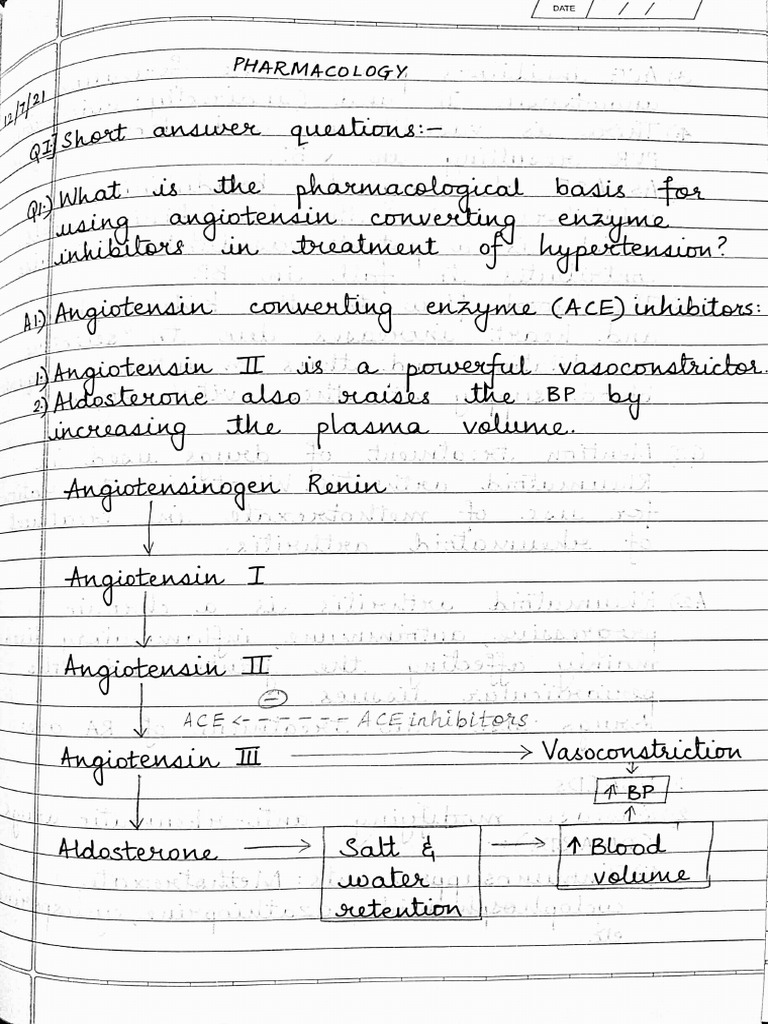 DATE / /
PHARMACOLOGY
12/7/21
QI:] Short answer questions:-
Q1.) What is the pharmacological basis for
using angiotensin converting enzyme
inhibitors in treatment of hypertension?
A1.) Angiotensin converting enzyme (ACE) inhibitors:
1.) Angiotensin II is a powerful vasoconstrictor.
2.) Aldosterone also raises the BP by
increasing the plasma volume.
Angiotensinogen Renin
↓
Angiotensin I
↓
Angiotensin II
↓
⊖
ACE <- - - - - - ACE inhibitors
Angiotensin III → Vasoconstriction
↓
↑ BP
↑
Aldosterone → Salt & → ↑ Blood
water volume
retention